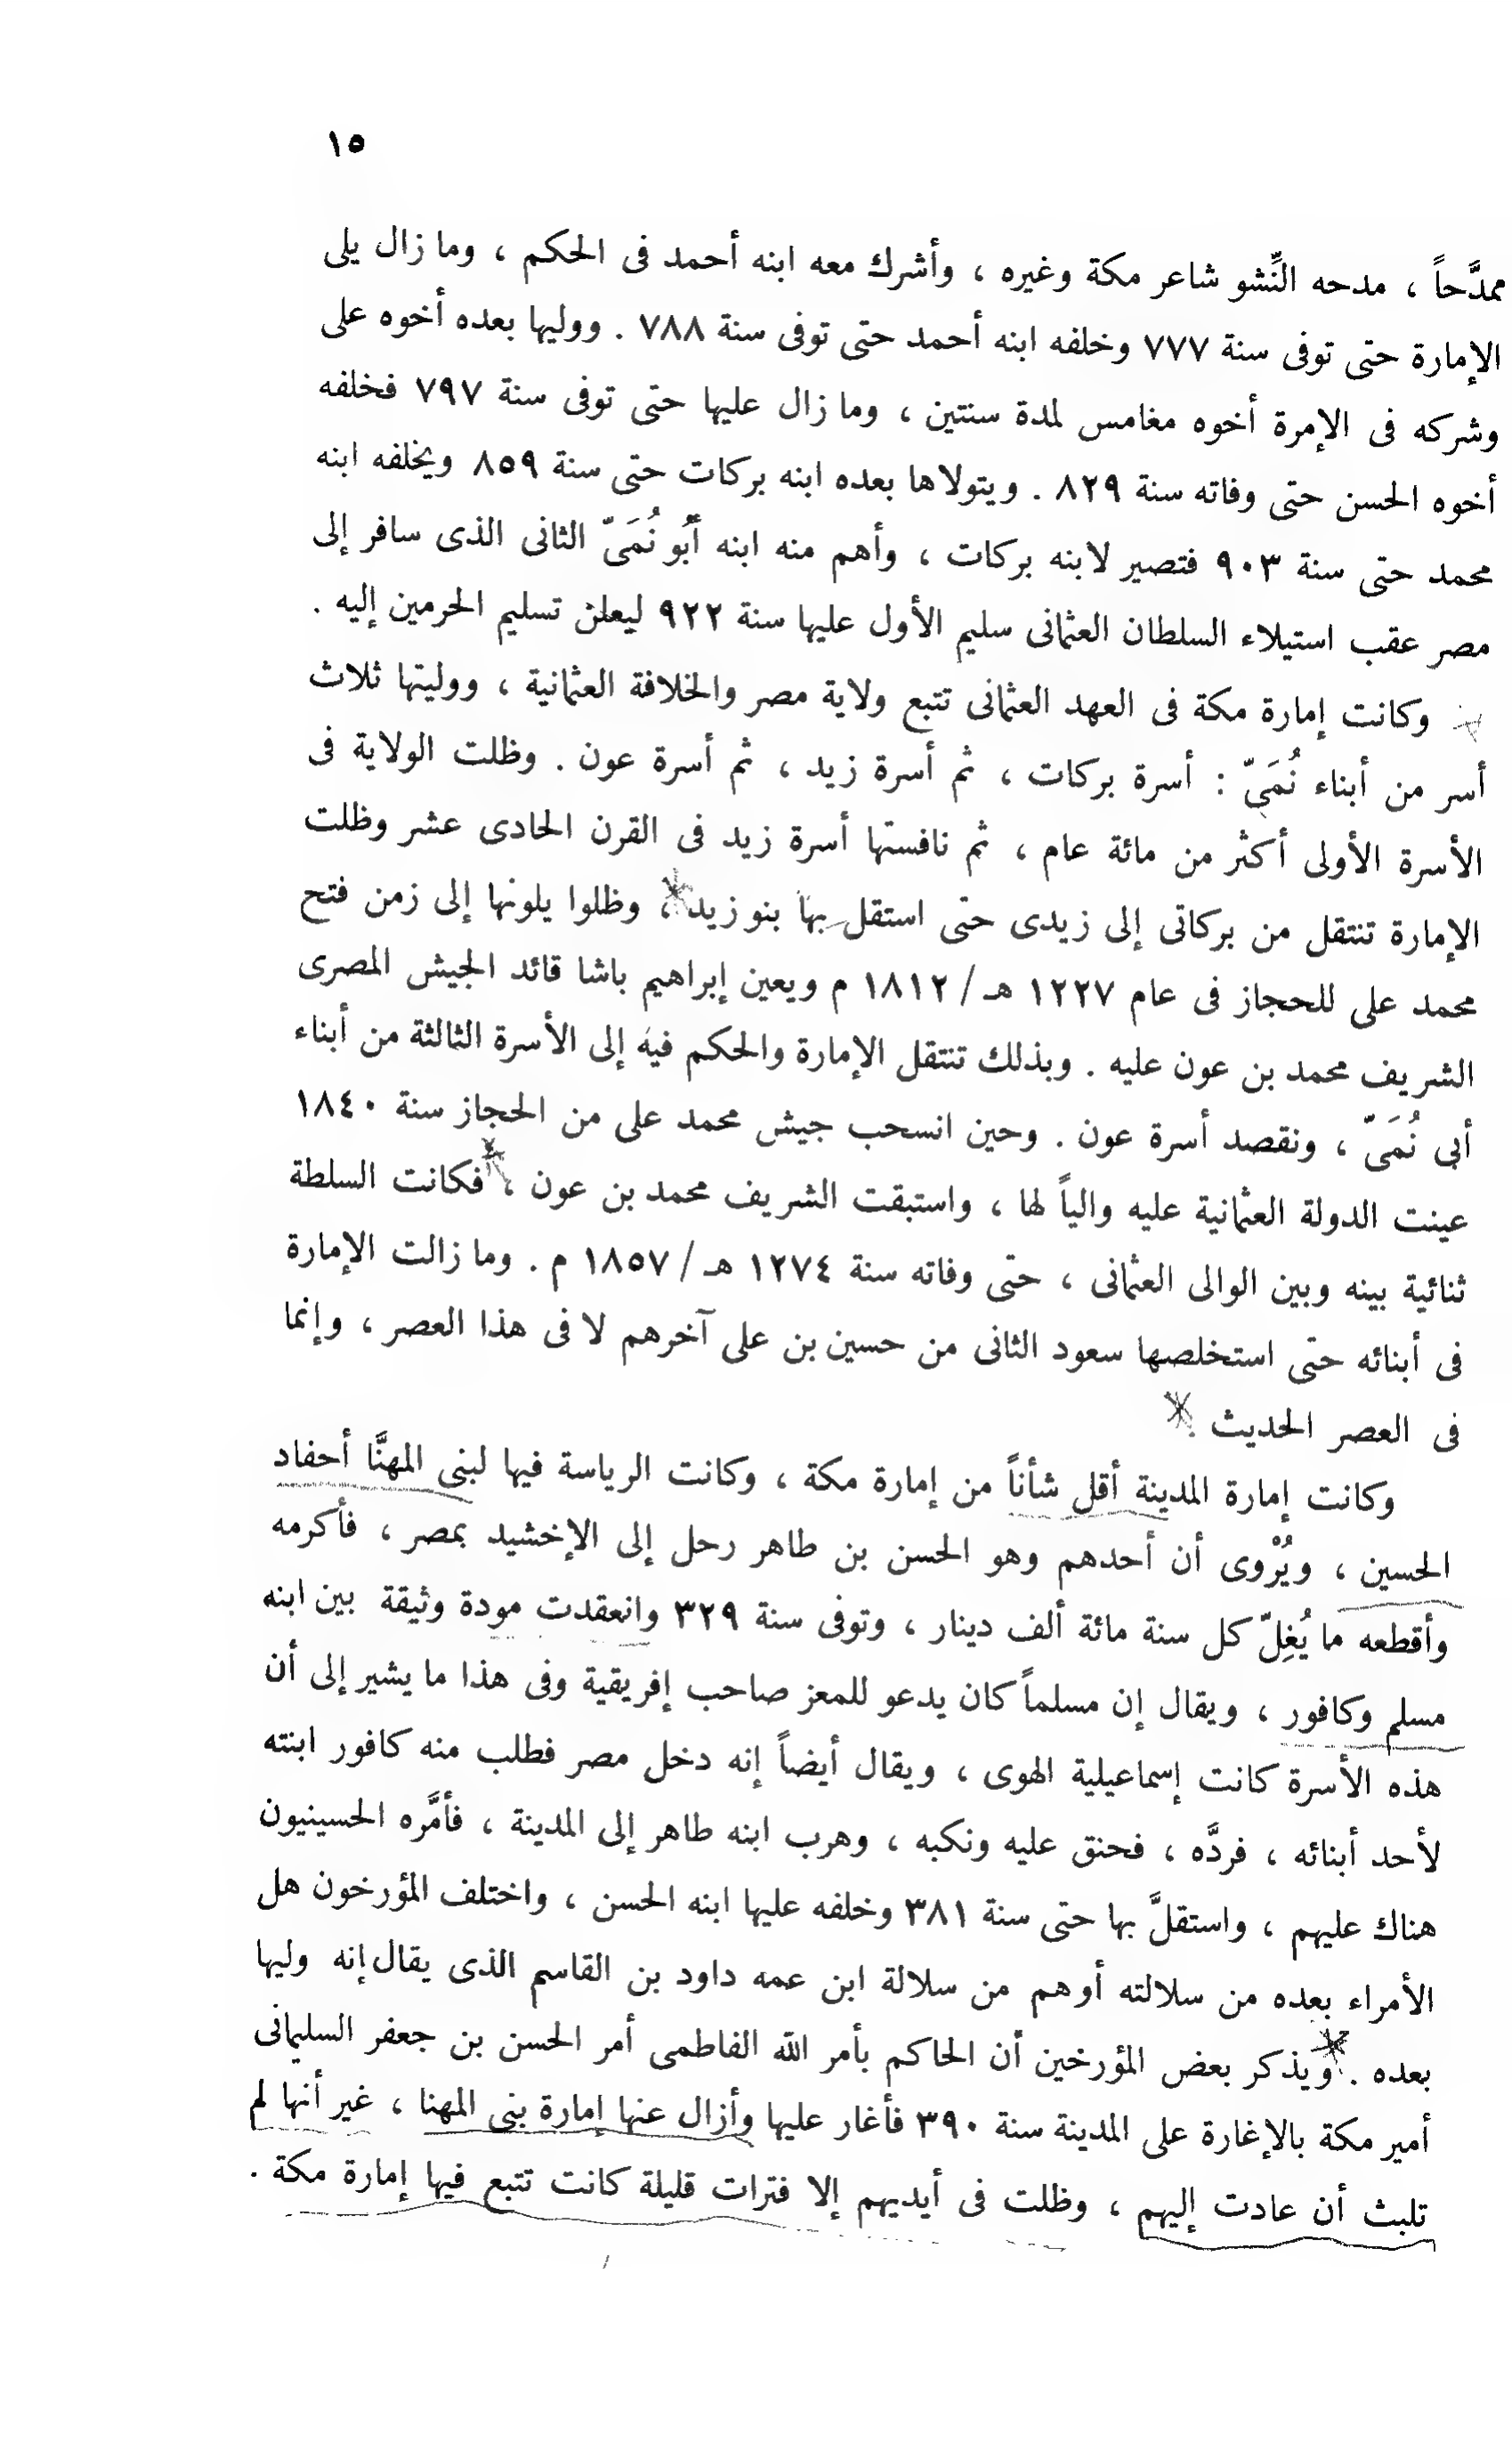 ١٥
ممدَّحاً ، مدحه النِّشو شاعر مكة وغيره ، وأشرك معه ابنه أحمد فى الحكم ، وما زال يلى
الإمارة حتى توفى سنة ٧٧٧ وخلفه ابنه أحمد حتى توفى سنة ٧٨٨ . ووليها بعده أخوه على
وشركه فى الإمرة أخوه مغامس لمدة سنتين ، وما زال عليها حتى توفى سنة ٧٩٧ فخلفه
أخوه الحسن حتى وفاته سنة ٨٢٩ . ويتولاها بعده ابنه بركات حتى سنة ٨٥٩ ويخلفه ابنه
محمد حتى سنة ٩٠٣ فتصير لابنه بركات ، وأهم منه ابنه أبُو نُمَىّ الثانى الذى سافر إلى
مصر عقب استيلاء السلطان العثمانى سليم الأول عليها سنة ٩٢٢ ليعلن تسليم الحرمين إليه .
وكانت إمارة مكة فى العهد العثمانى تتبع ولاية مصر والخلافة العثمانية ، ووليتها ثلاث
أسر من أبناء نُمَىّ : أسرة بركات ، ثم أسرة زيد ، ثم أسرة عون . وظلت الولاية فى
الأسرة الأولى أكثر من مائة عام ، ثم نافستها أسرة زيد فى القرن الحادى عشر وظلت
الإمارة تنتقل من بركاتى إلى زيدى حتى استقل بها بنو زيد ، وظلوا يلونها إلى زمن فتح
محمد على للحجاز فى عام ١٢٢٧ هـ / ١٨١٢ م ويعين إبراهيم باشا قائد الجيش المصرى
الشريف محمد بن عون عليه . وبذلك تنتقل الإمارة والحكم فيه إلى الأسرة الثالثة من أبناء
أبى نُمَىّ ، ونقصد أسرة عون . وحين انسحب جيش محمد على من الحجاز سنة ١٨٤٠
عينت الدولة العثمانية عليه والياً لها ، واستبقت الشريف محمد بن عون ، فكانت السلطة
ثنائية بينه وبين الوالى العثمانى ، حتى وفاته سنة ١٢٧٤ هـ / ١٨٥٧ م . وما زالت الإمارة
فى أبنائه حتى استخلصها سعود الثانى من حسين بن على آخرهم لا فى هذا العصر ، وإنما
فى العصر الحديث .
وكانت إمارة المدينة أقل شأناً من إمارة مكة ، وكانت الرياسة فيها لبنى المهنَّا أحفاد
الحسين ، ويُرْوى أن أحدهم وهو الحسن بن طاهر رحل إلى الإخشيد بمصر ، فأكرمه
وأقطعه ما يُغِلّ كل سنة مائة ألف دينار ، وتوفى سنة ٣٢٩ وانعقدت مودة وثيقة بين ابنه
مسلم وكافور ، ويقال إن مسلماً كان يدعو للمعز صاحب إفريقية وفى هذا ما يشير إلى أن
هذه الأسرة كانت إسماعيلية الهوى ، ويقال أيضاً إنه دخل مصر فطلب منه كافور ابنته
لأحد أبنائه ، فردَّه ، فحنق عليه ونكبه ، وهرب ابنه طاهر إلى المدينة ، فأمَّره الحسينيون
هناك عليهم ، واستقلَّ بها حتى سنة ٣٨١ وخلفه عليها ابنه الحسن ، واختلف المؤرخون هل
الأمراء بعده من سلالته أو هم من سلالة ابن عمه داود بن القاسم الذى يقال إنه وليها
بعده . ويذكر بعض المؤرخين أن الحاكم بأمر الله الفاطمى أمر الحسن بن جعفر السليمانى
أمير مكة بالإغارة على المدينة سنة ٣٩٠ فأغار عليها وأزال عنها إمارة بنى المهنا ، غير أنها لم
تلبث أن عادت إليهم ، وظلت فى أيديهم إلا فترات قليلة كانت تتبع فيها إمارة مكة .